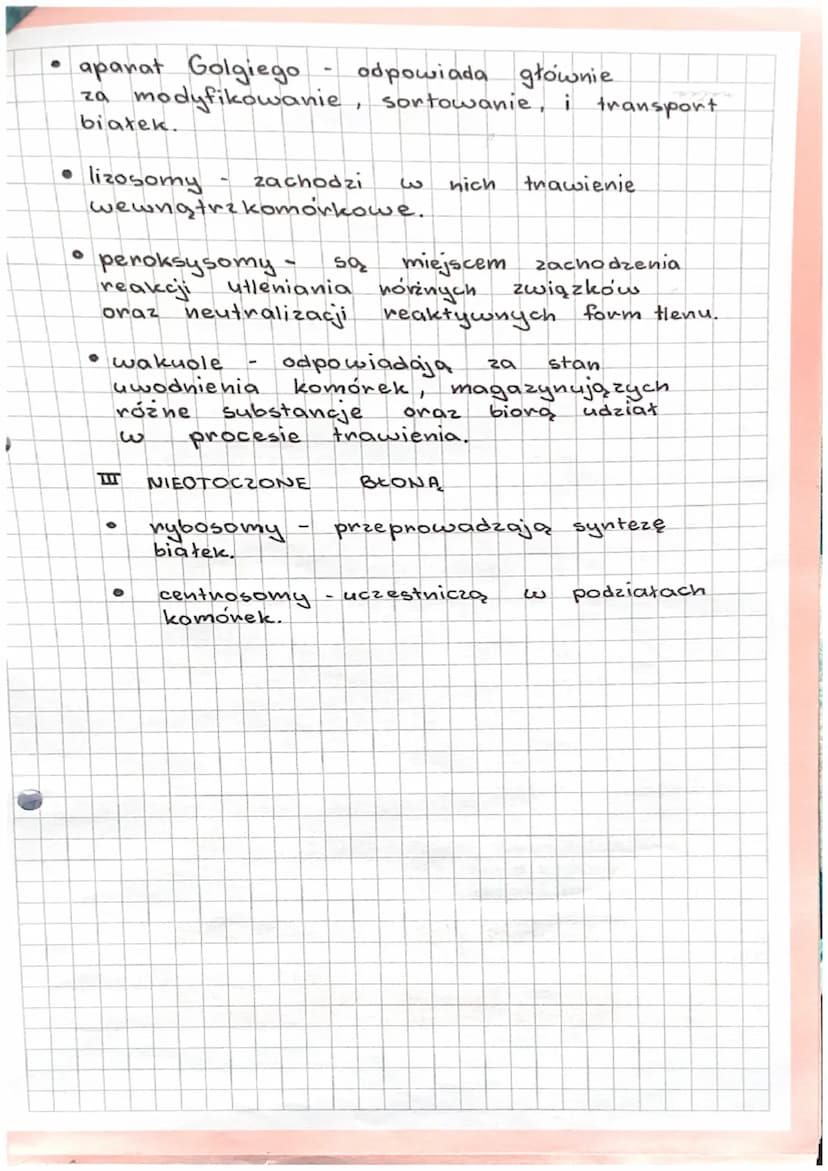 • aparat Golgiego - odpowiada głównie
za modyfikowanie, sortowanie, i transport
białek.
• lizosomy - zachodzi w nich trawienie
wewnątrzkomórkowe.
• peroksysomy - są miejscem zachodzenia
reakcji utleniania różnych związków
oraz neutralizacji reaktywnych form tlenu.
• wakuole - odpowiadają za stan
uwodnienia komórek, magazynujązych
różne substancje oraz biorą udział
w procesie trawienia.
III NIEOTOCZONE BŁONĄ
• rybosomy - przeprowadzają syntezę
białek.
• centrosomy - uczestniczą w podziałach
komórek.